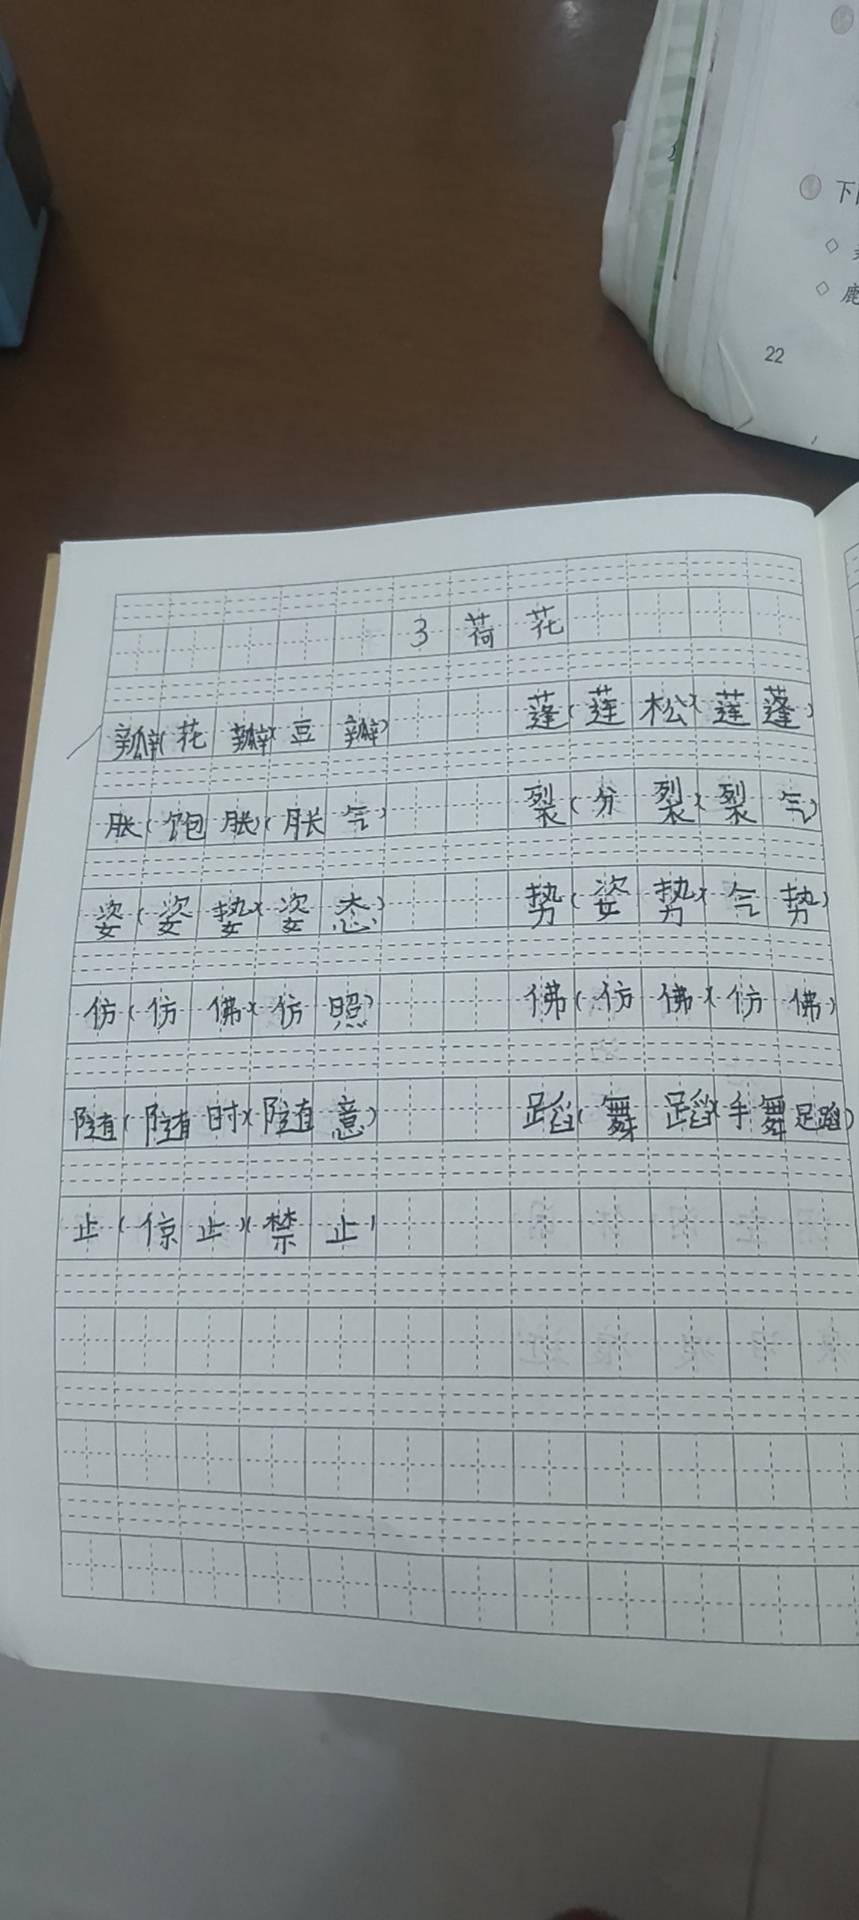 下
鹿
22
3 荷花
瓣(花瓣)(豆瓣) 蓬(莲松)(莲蓬)
胀(饱胀)(胀气) 裂(分裂)(裂气)
姿(姿势)(姿态) 势(姿势)(气势)
仿(仿佛)(仿照) 佛(仿佛)(仿佛)
随(随时)(随意) 蹈(舞蹈)(手舞足蹈)
止(停止)(禁止)